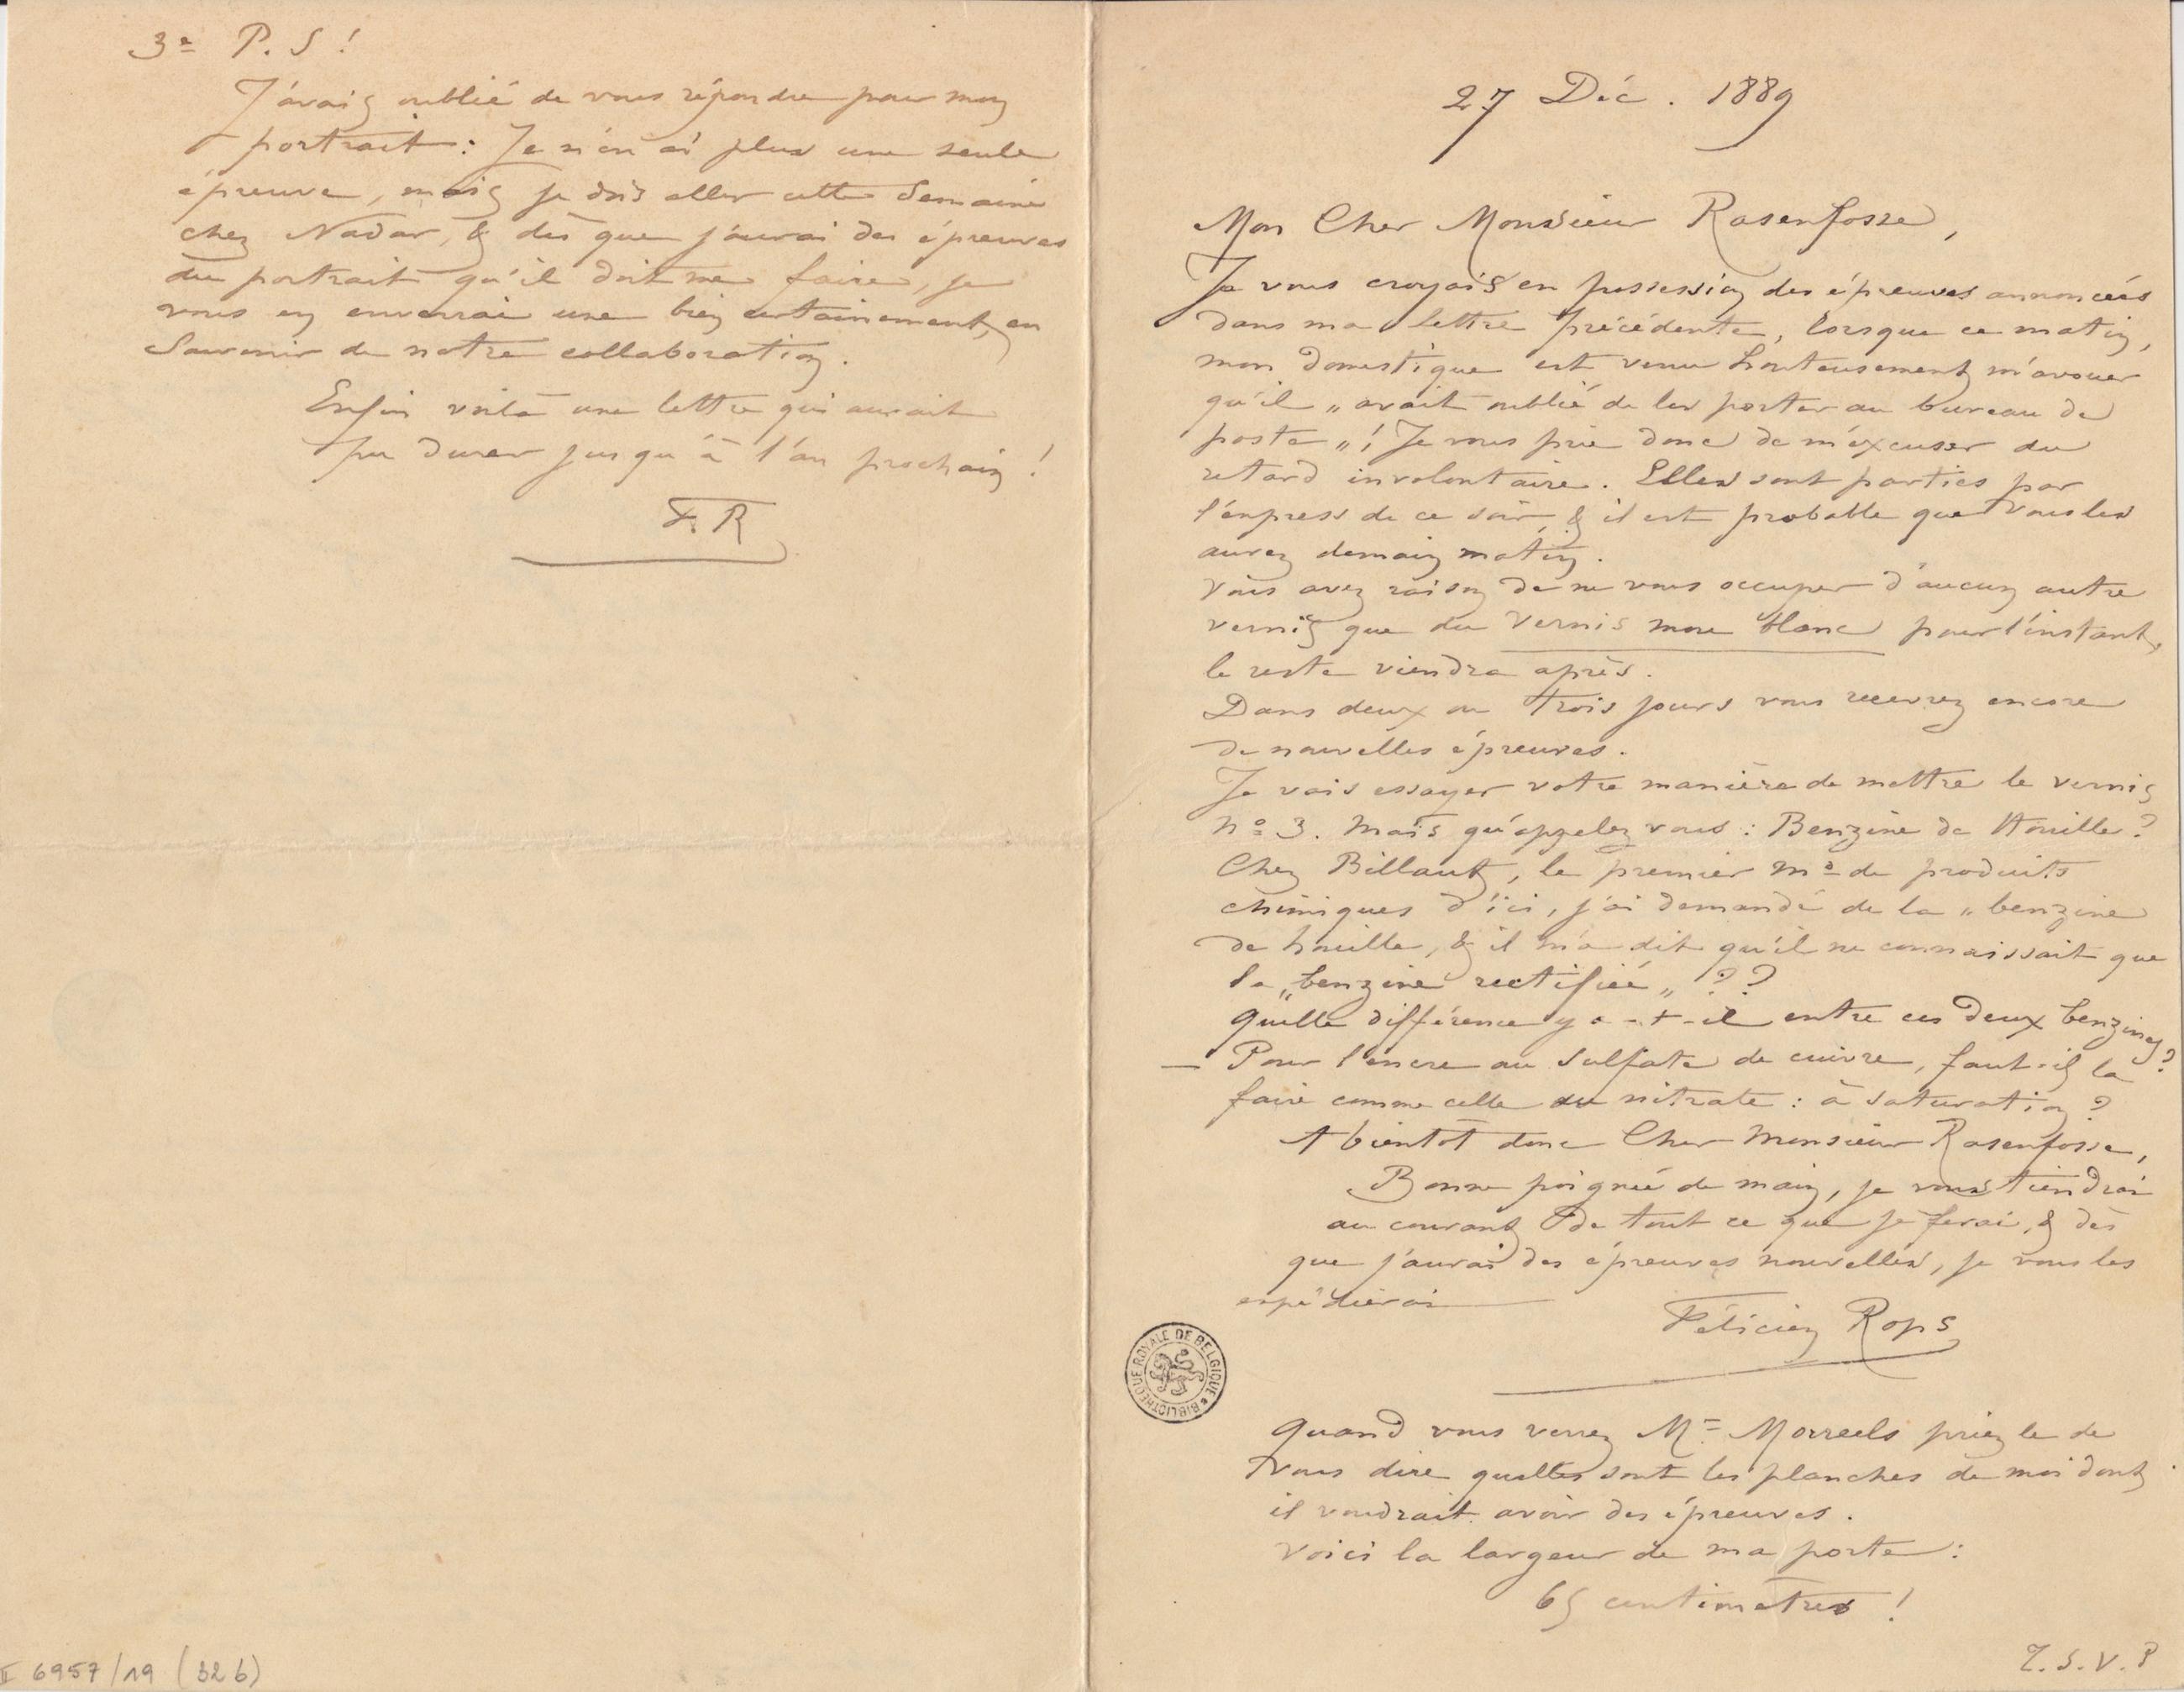 27 Déc. 1889
Mon Cher Monsieur Rasenfosse,
Je vous croyais en possession des épreuves annoncées
dans ma lettre précédente, lorsque ce matin,
mon domestique est venu honteusement m'avouer
qu'il „ avait oublié de les porter au bureau de
poste „ ! Je vous prie donc de m'excuser du
retard involontaire. Elles sont parties par
l'express de ce soir, & il est probable que vous les
aurez demain matin.
Vous avez raison de ne vous occuper d'aucun autre
vernis que du vernis mou blanc pour l'instant,
le reste viendra après.
Dans deux ou trois jours vous recevrez encore
de nouvelles épreuves.
Je vais essayer votre manière de mettre le vernis
no 3. Mais qu'appelez vous : Benzine de Houille ?
Chez Billault, le premier Md de produits
chimiques d'ici, j'ai demandé de la „ benzine
de houille, & il m'a dit qu'il ne connaissait que
la „ benzine rectifiée „ ??
Quelle différence y a-t-il entre ces deux benzines ?
— Pour l'encre au sulfate de cuivre, faut-il la
faire comme celle au nitrate : à saturation ?
A bientôt donc Cher Monsieur Rasenfosse,
Bonne poignée de main, je vous tiendrai
au courant de tout ce que je ferai, & dès
que j'aurai des épreuves nouvelles, je vous les
expédierai
Félicien Rops
BIBLIOTHEQUE ROYALE DE BELGIQUE
Quand vous verrez Mr Morreels priez le de
vous dire quelles sont les planches de moi dont
il voudrait avoir des épreuves.
Voici la largeur de ma porte :
65 centimètres !
T.S.V.P
3e P.S !
J'avais oublié de vous répondre pour mon
portrait : Je n'en ai plus une seule
épreuve, mais je dois aller cette semaine
chez Nadar, & dès que j'aurai des épreuves
du portrait qu'il doit me faire, je
vous en enverrai une bien certainement, en
souvenir de notre collaboration.
Enfin voilà une lettre qui aurait
pu durer jusqu'à l'an prochain !
F.R
II 6957/19 (32 b)